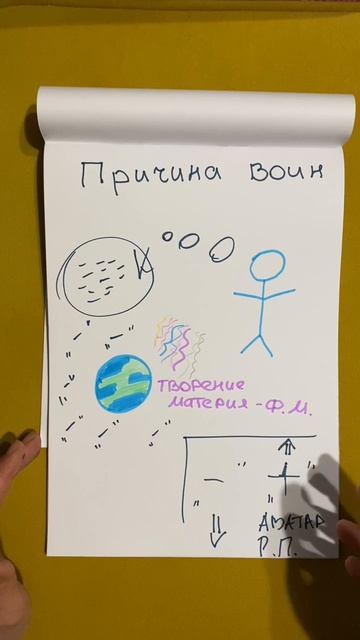 Причина воин
ТВОРЕНИЕ
МАТЕРИЯ-Ф.М.
АВАТАР
Р.П.